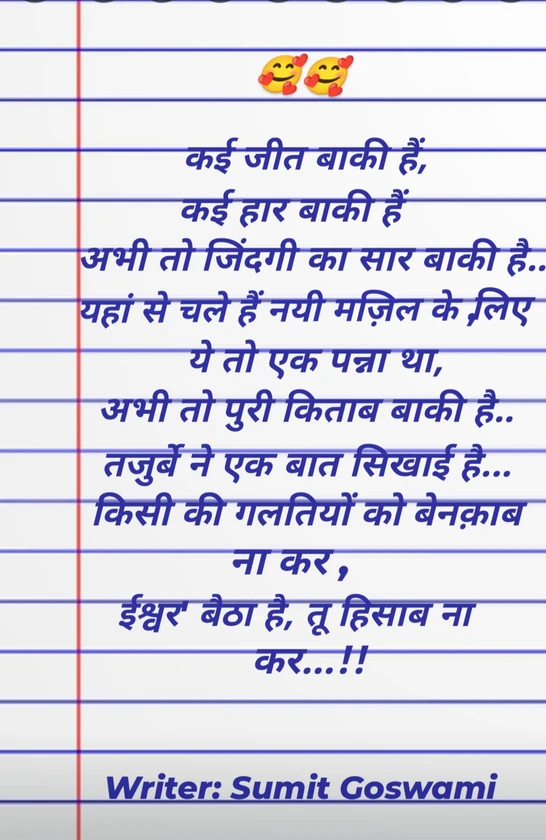 🥰🥰
कई जीत बाकी हैं,
कई हार बाकी हैं
अभी तो जिंदगी का सार बाकी है..
यहां से चले हैं नयी मज़िल के ,लिए
ये तो एक पन्ना था,
अभी तो पुरी किताब बाकी है..
तजुर्बे ने एक बात सिखाई है...
किसी की गलतियों को बेनक़ाब
ना कर ,
ईश्वर' बैठा है, तू हिसाब ना
कर...!!
Writer: Sumit Goswami